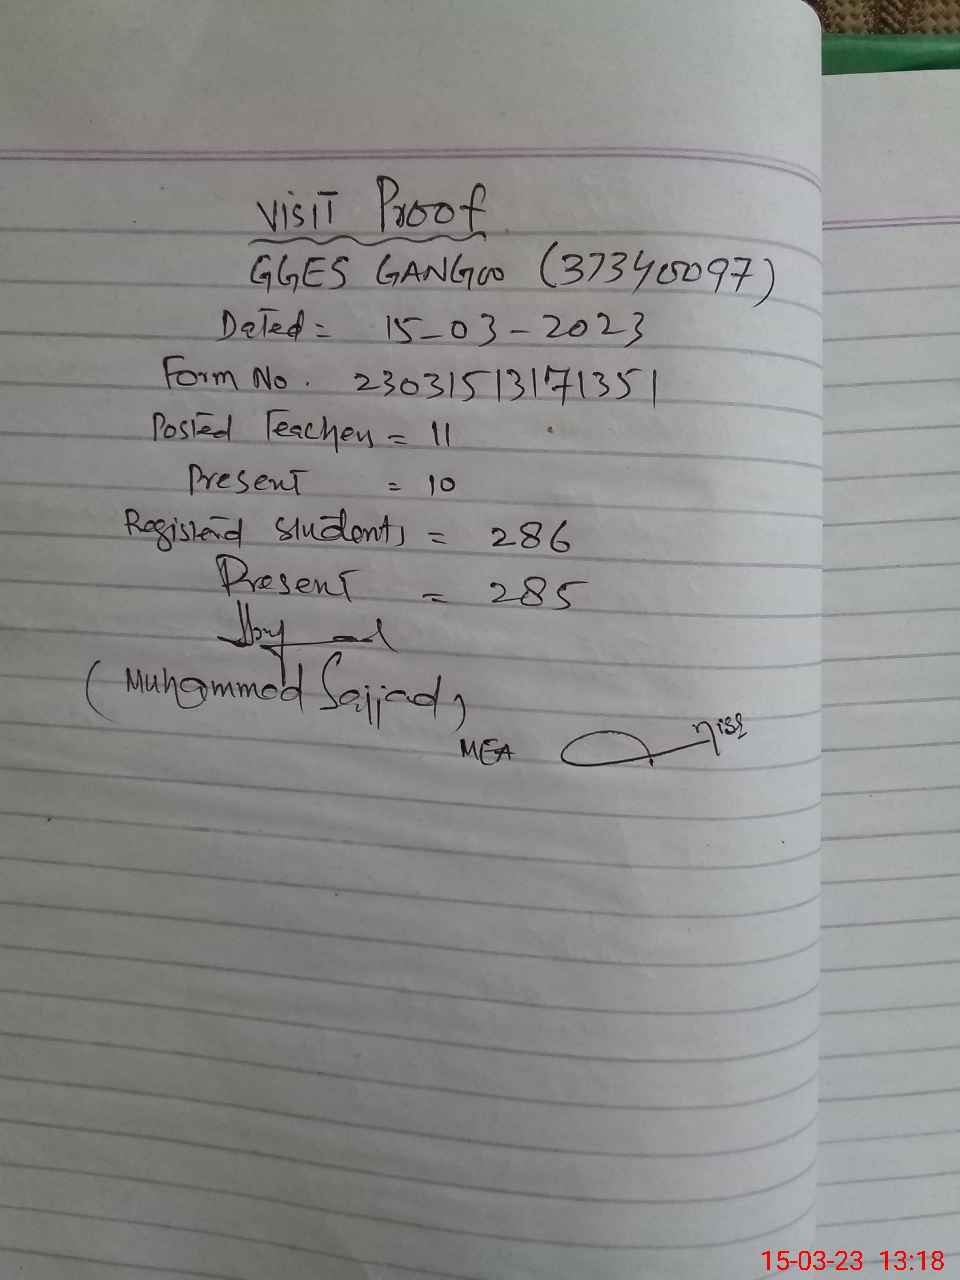 Visit Proof
GGES GANGOO (37340097)
Dated = 15-03-2023
Form No. 23031513171351
Posted Teachers = 11
Present = 10
Registerd students = 286
Present = 285
(Muhammad Sajjad)
MEA
15-03-23 13:18